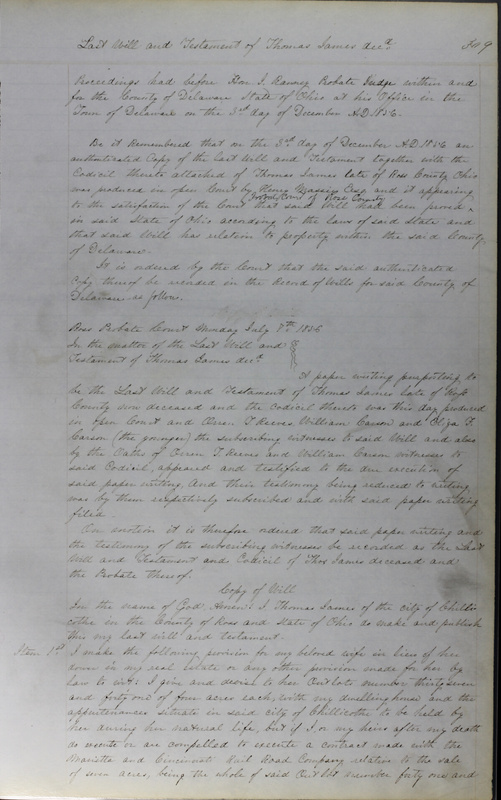 Last Will and Testament of Thomas James decd
349
Proceedings had before Hon. T. Ranney Probate Judge within and
for the County of Delaware State of Ohio at his Office in the
Town of Delaware on the 3rd day of December A.D. 1856.
Be it Remembered that on the 3rd day of December A.D. 1856 an
authenticated Copy of the Last Will and Testament together with the
Codicil thereto attached of Thomas James late of Ross County Ohio
was produced in open Court by Henry Massie Esqr and it appearing
to the satisfaction of the Court that said Will had been proven
Probate Court of Ross County
in said State of Ohio according to the laws of said State and
that said Will has relation to property within the said County
of Delaware.
It is ordered by the Court that the said authenticated
Copy thereof be recorded in the Record of Wills for said County of
Delaware as follows.
Ross Probate Court Monday July 7th 1856
In the matter of the Last Will and
Testament of Thomas James decd
A paper writing purporting to
be the Last Will and Testament of Thomas James late of Ross
County now deceased and the Codicil thereto was this day produced
in open Court and T Reeves William Carson and Eliza F.
Carson (the younger) the subscribing witnesses to said Will and also
by the Oaths of T Reeves and William Carson witnesses to
said Codicil, appeared and testified to the due execution of
said paper writing. And their testimony being reduced to writing
was by them respectively subscribed and with said paper writing
filed
On motion it is therefore ordered that said paper writing and
the testimony of the subscribing witnesses be recorded as the Last
Will and Testament and Codicil of Thos James deceased and
the Probate thereof.
Copy of Will
In the name of God Amen: I Thomas James of the city of Chilli
cothe in the County of Ross and State of Ohio do make and publish
this my last will and testament.
Item 1st I make the following provision for my beloved wife in lieu of her
dower in my real estate or any other provision made for her by
law to wit: I give and devise to her Outlots number thirty seven
and forty one of four acres each, with my dwelling house and the
appurtenances situate in said city of Chillicothe to be held by
her during her natural life, but if I, or my heirs after my death
do execute or are compelled to execute a contract made with the
Marietta and Cincinnati Rail Road Company relative to the sale
of seven acres, being the whole of said Out lot number forty one and